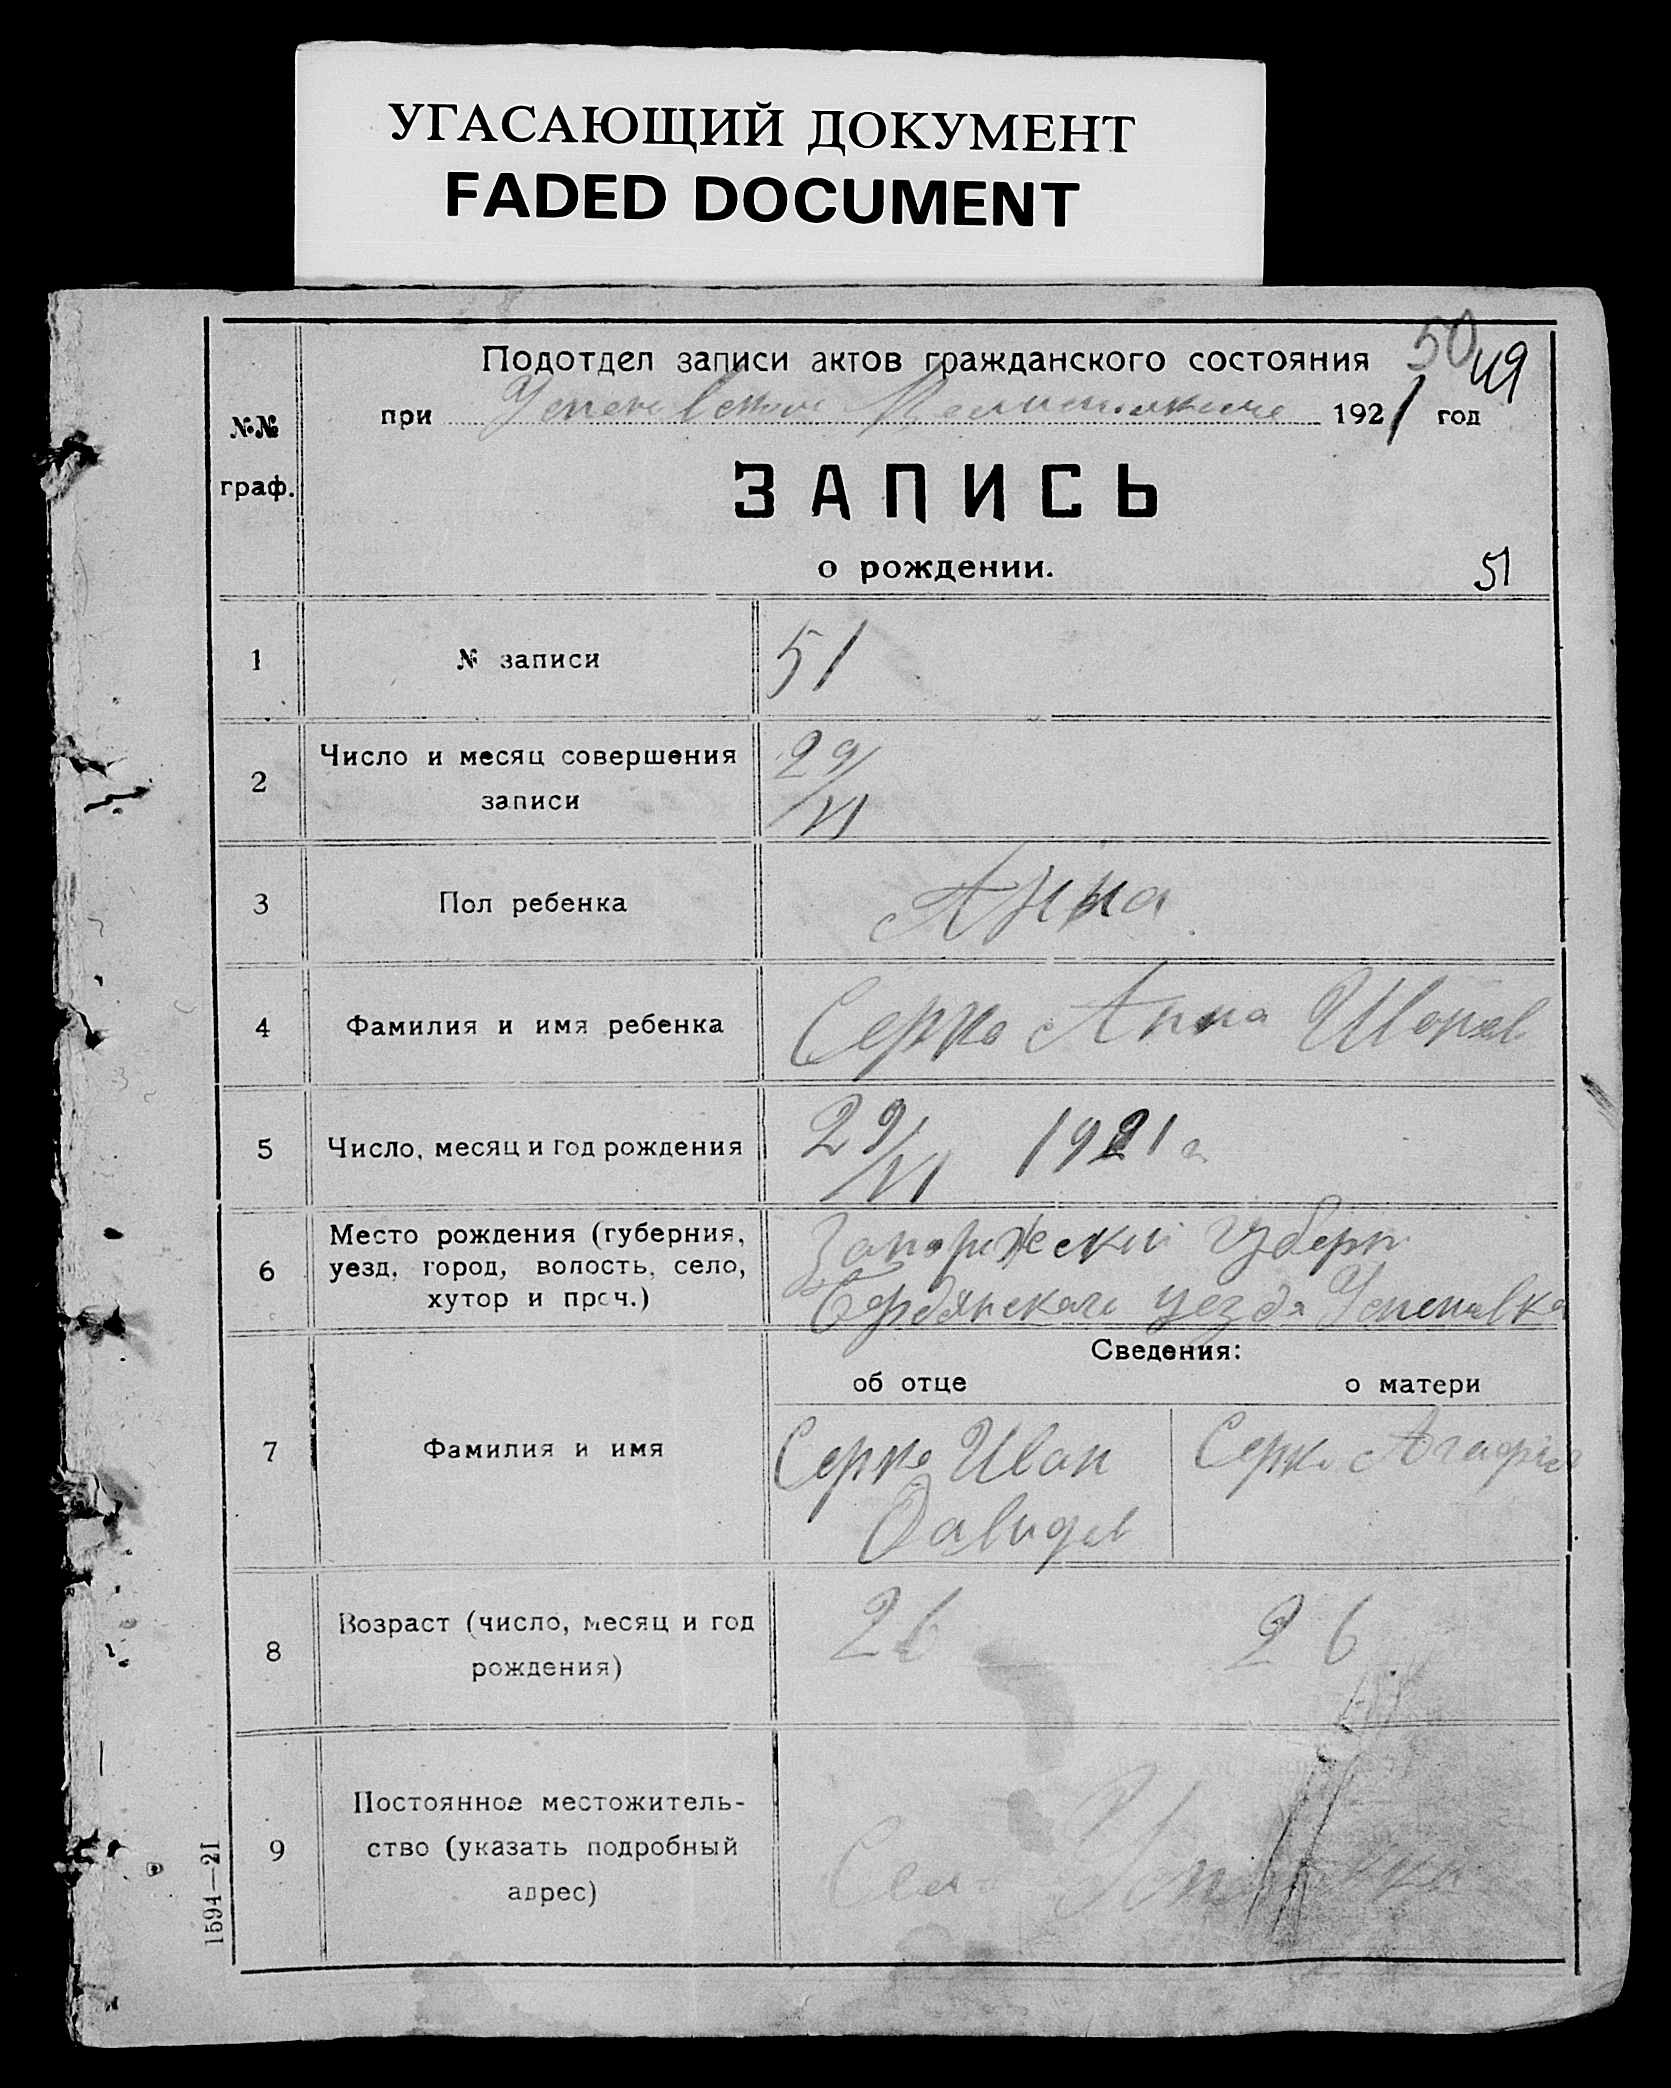 УГАСАЮЩИЙ ДОКУМЕНТ
FADED DOCUMENT
50
49
Подотдел записи актов гражданского состояния
при 1921 год
№№
граф.
ЗАПИСЬ
о рождении.
51
1 № записи 51
2 Число и месяц совершения
записи
29/VI
3 Пол ребенка Анна
4 Фамилия и имя ребенка Серко Анна Иванов
5 Число, месяц и год рождения 29/VI 1921 г
6 Место рождения (губерния,
уезд, город, волость, село,
хутор и проч.)
Запорожский губерн
Бердянского уезда Успеновка
Сведения:
об отце о матери
7 Фамилия и имя
Серко Иван
Давидов
Серко Агафия
8 Возраст (число, месяц и год
рождения)
26 26
9 Постоянное местожитель-
ство (указать подробный
адрес)
1594—21